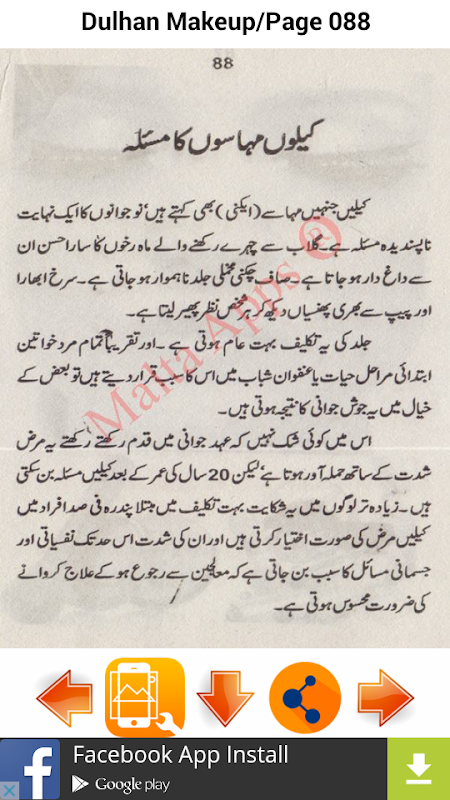 Dulhan Makeup/Page 088
88
کیلوں مہاسوں کا مسئلہ
کیلیں جنہیں مہاسے (ایکنی) بھی کہتے ہیں' نوجوانوں کا ایک نہایت
ناپسندیدہ مسئلہ ہے۔ گلاب سے چہرے رکھنے والے ماہ رخوں کا سارا حسن ان
سے داغ دار ہو جاتا ہے۔ صاف چکنی مخملی جلد ناہموار ہو جاتی ہے۔ سرخ ابھار اا
اور پیپ سے بھری پھنسیاں دیکھ کر ہر شخص نظر پھیر لیتا ہے۔
جلد کی یہ تکلیف بہت عام ہوتی ہے۔ اور تقریباً تمام مرد خواتین
ابتدائی مراحل حیات یا عنفوان شباب میں اس کا سبب قرار دیتے ہیں تو بعض کے
خیال میں یہ جوش جوانی کا نتیجہ ہوتی ہیں۔
اس میں کوئی شک نہیں کہ عہد جوانی میں قدم رکھتے رکھتے یہ مرض
شدت کے ساتھ حملہ آور ہوتا ہے' لیکن 20 سال کی عمر کے بعد کیلیں مسئلہ بن سکتی
ہیں۔ زیادہ تر لوگوں میں یہ شکایت بہت تکلیف میں مبتلا پندرہ فی صد افراد میں
کیلیں مرض کی صورت اختیار کرتی ہیں اور ان کی شدت اس حد تک نفسیاتی اور
جسمانی مسائل کا سبب بن جاتی ہے کہ معالجین سے رجوع ہو کے علاج کروانے
کی ضرورت محسوس ہوتی ہے۔
Malta Apps ®
Facebook App Install
Google play